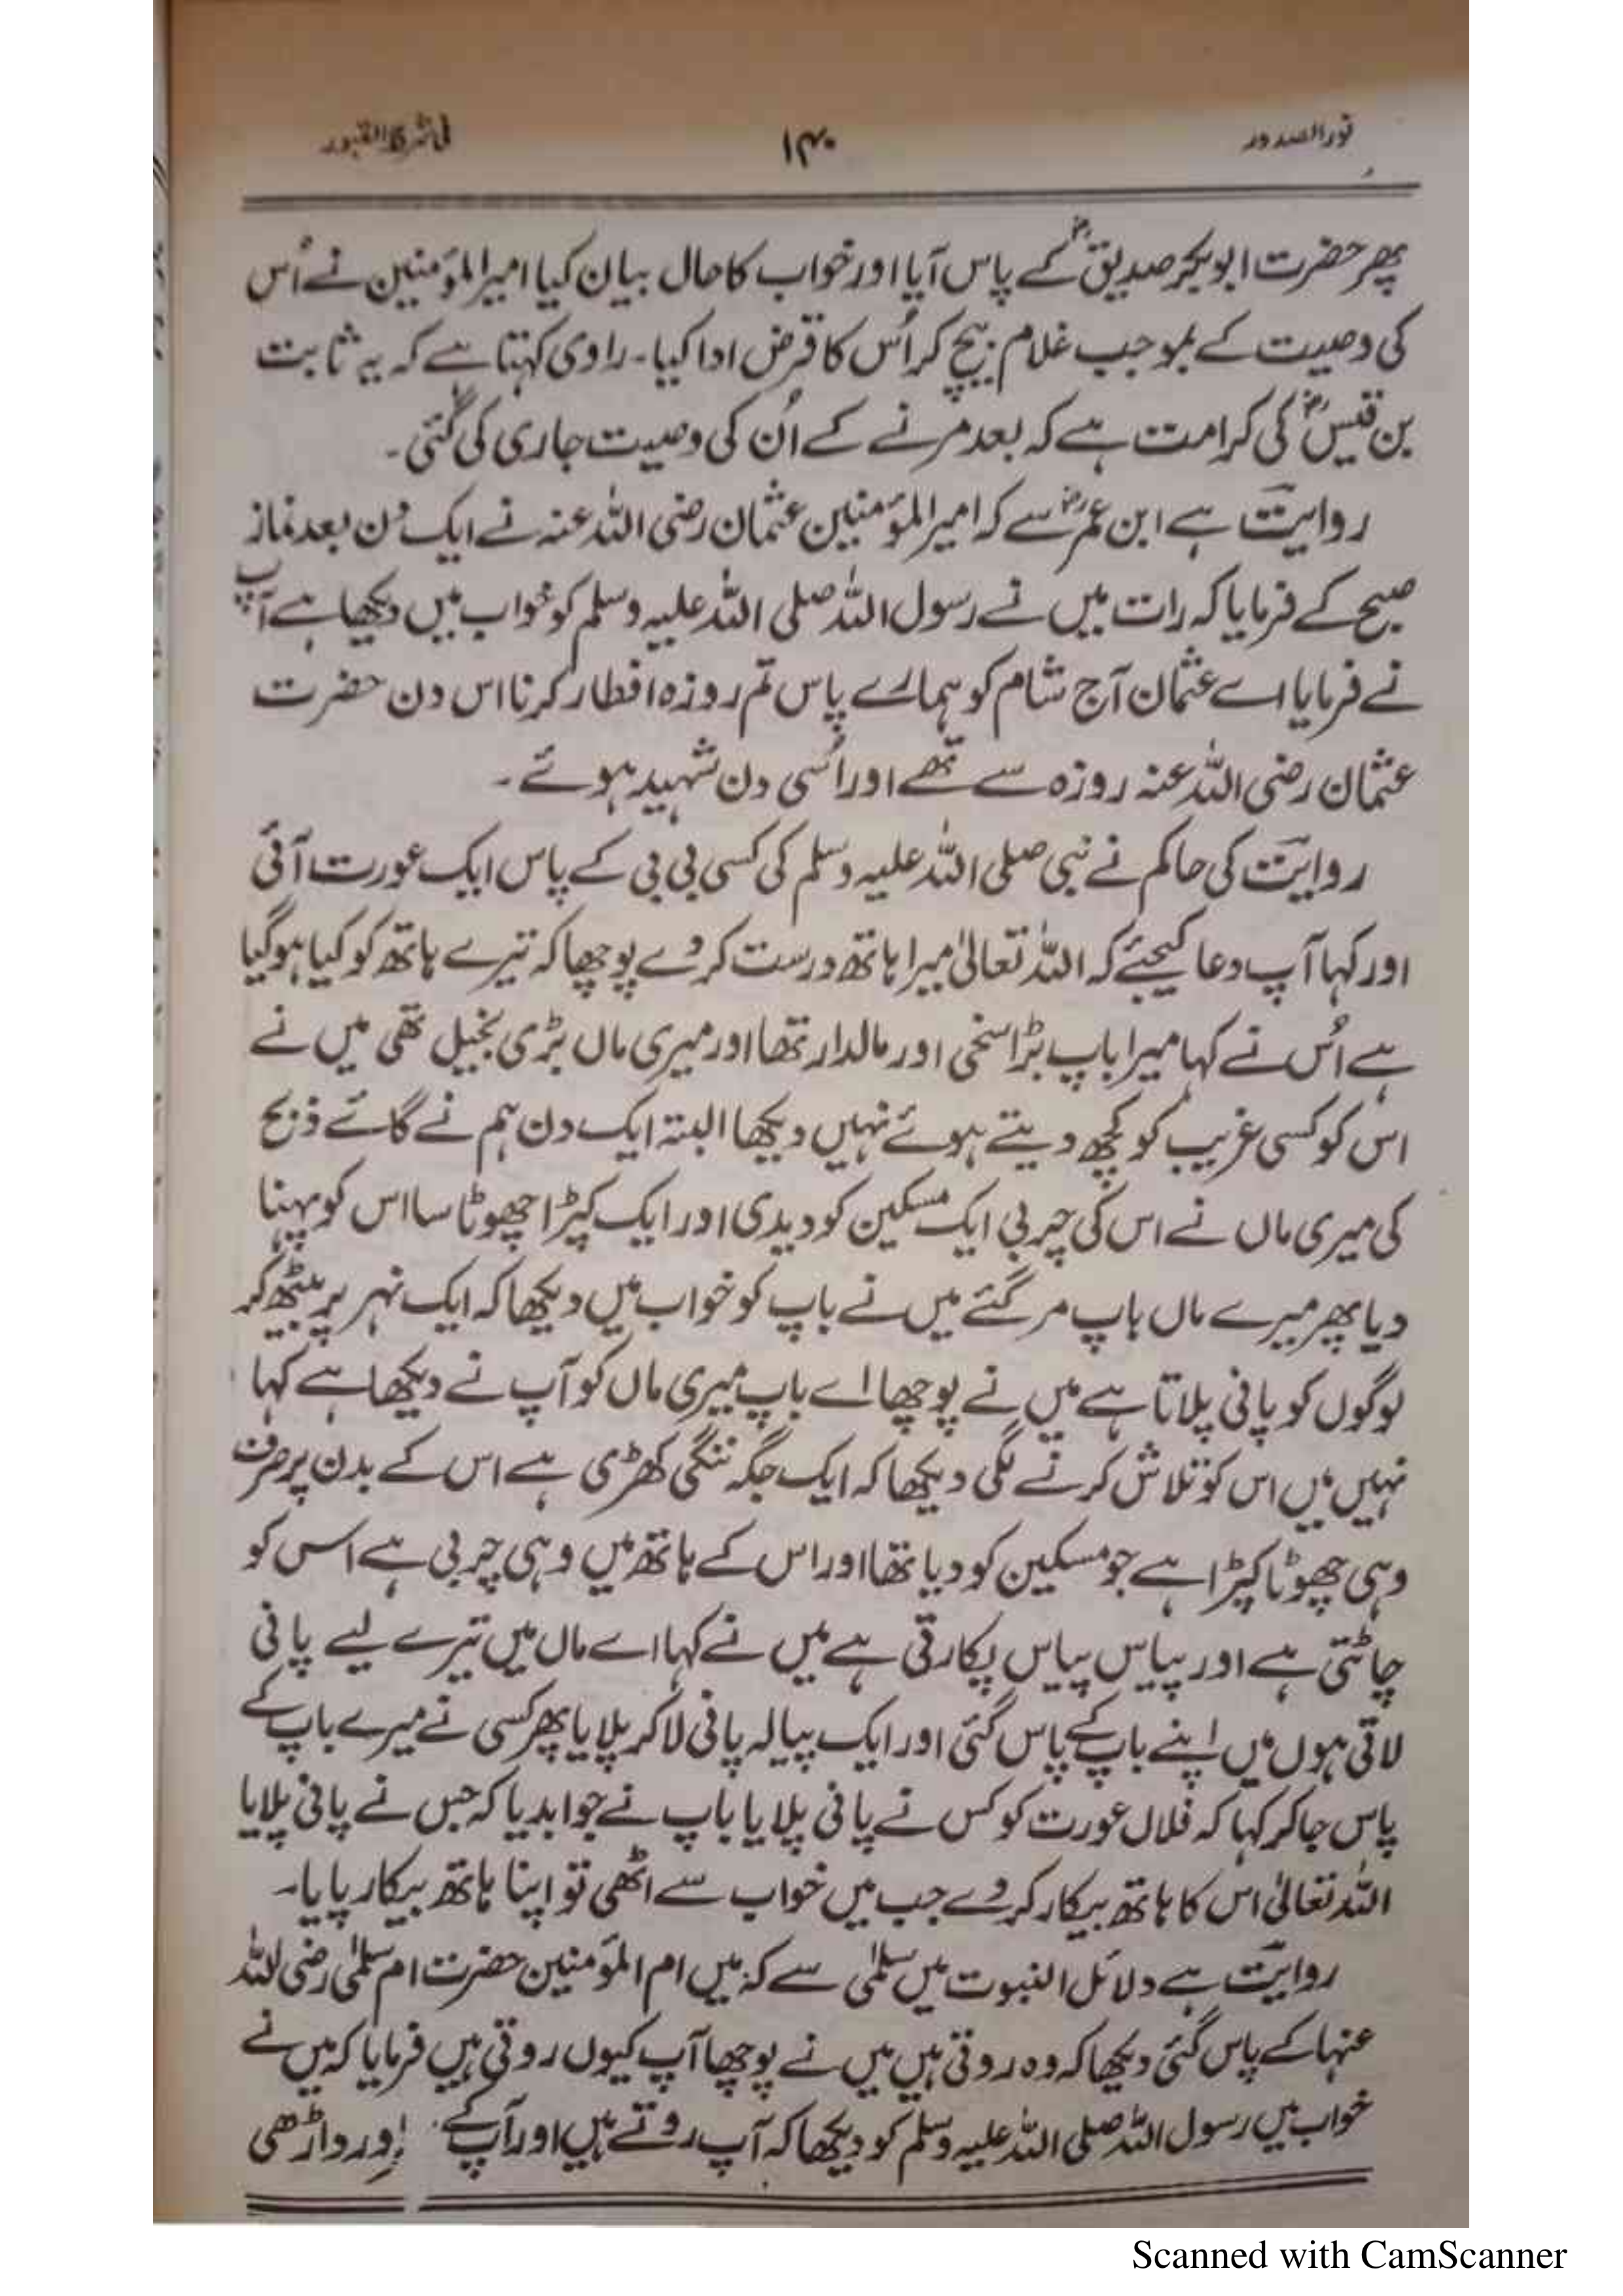 نور الصدور
۱۴۰
فی شرح القبور
پھر حضرت ابوبکر صدیقؓ کے پاس آیا اور خواب کا حال بیان کیا امیرالمؤمنین نے اُس
کی وصیت کے بموجب غلام بیچ کر اُس کا قرض ادا کیا۔ راوی کہتا ہے کہ یہ ثابت
بن قیسؓ کی کرامت ہے کہ بعد مرنے کے اُن کی وصیت جاری کی گئی۔
روایت ہے ابن عمرؓ سے کہ امیرالمؤمنین عثمان رضی اللہ عنہ نے ایک دن بعد نماز
صبح کے فرمایا کہ رات میں نے رسول اللہ صلی اللہ علیہ وسلم کو خواب میں دیکھا ہے آپ
نے فرمایا اے عثمان آج شام کو ہمارے پاس تم روزہ افطار کرنا اس دن حضرت
عثمان رضی اللہ عنہ روزہ سے تھے اور اُسی دن شہید ہوئے۔
روایت کی حاکم نے نبی صلی اللہ علیہ وسلم کی کسی بی بی کے پاس ایک عورت آئی
اور کہا آپ دعا کیجئے کہ اللہ تعالیٰ میرا ہاتھ درست کر دے پوچھا کہ تیرے ہاتھ کو کیا ہوگیا
ہے اُس نے کہا میرا باپ بڑا سخی اور مالدار تھا اور میری ماں بڑی بخیل تھی میں نے
اس کو کسی غریب کو کچھ دیتے ہوئے نہیں دیکھا البتہ ایک دن ہم نے گائے ذبح
کی میری ماں نے اس کی چربی ایک مسکین کو دیدی اور ایک کپڑا چھوٹا سا اس کو پہنا
دیا پھر میرے ماں باپ مر گئے میں نے باپ کو خواب میں دیکھا کہ ایک نہر پر بیٹھ کر
لوگوں کو پانی پلاتا ہے میں نے پوچھا اے باپ میری ماں کو آپ نے دیکھا ہے کہا
نہیں میں اس کو تلاش کرنے لگی دیکھا کہ ایک جگہ ننگی کھڑی ہے اس کے بدن پر صرف
وہی چھوٹا کپڑا ہے جو مسکین کو دیا تھا اور اس کے ہاتھ میں وہی چربی ہے اس کو
چاٹتی ہے اور پیاس پیاس پکارتی ہے میں نے کہا اے ماں میں تیرے لیے پانی
لاتی ہوں میں اپنے باپ کے پاس گئی اور ایک پیالہ پانی لا کر پلایا پھر کسی نے میرے باپ کے
پاس جا کر کہا کہ فلاں عورت کو کس نے پانی پلایا باپ نے جوابدیا کہ جس نے پانی پلایا
اللہ تعالیٰ اس کا ہاتھ بیکار کر دے جب میں خواب سے اٹھی تو اپنا ہاتھ بیکار پایا۔
روایت ہے دلائل النبوت میں سلمٰی سے کہ میں ام المؤمنین حضرت ام سلمٰی رضی اللہ
عنہا کے پاس گئی دیکھا کہ وہ روتی ہیں میں نے پوچھا آپ کیوں روتی ہیں فرمایا کہ میں نے
خواب میں رسول اللہ صلی اللہ علیہ وسلم کو دیکھا کہ آپ روتے ہیں اور آپ کے اور داڑھی
Scanned with CamScanner